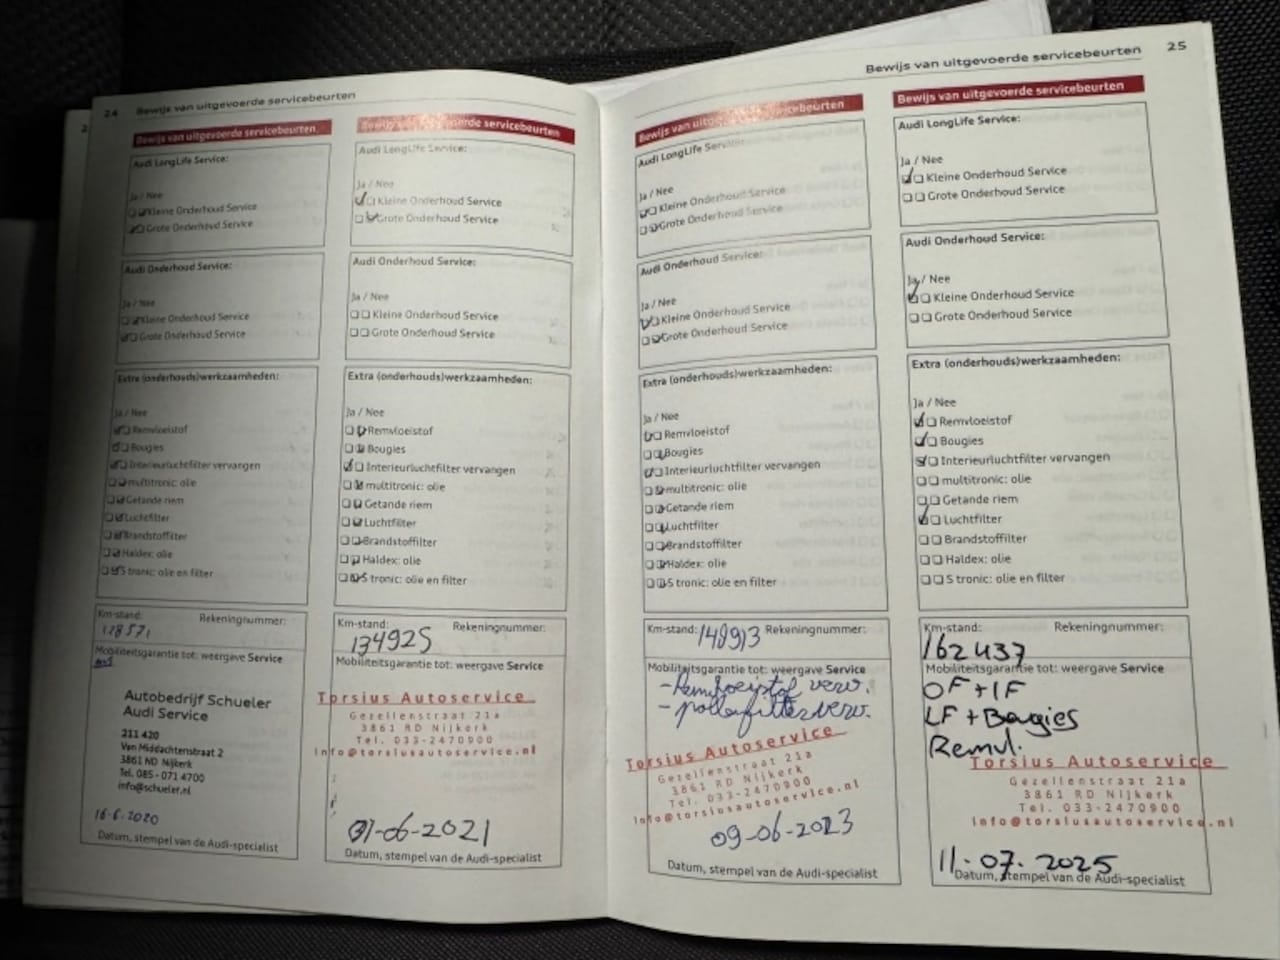 24 Bewijs van uitgevoerde servicebeurten
Bewijs van uitgevoerde servicebeurten
Audi LongLife Service:
Ja / Nee
Kleine Onderhoud Service
Grote Onderhoud Service
Audi Onderhoud Service:
Ja / Nee
Kleine Onderhoud Service
Grote Onderhoud Service
Extra (onderhouds)werkzaamheden:
Ja / Nee
Remvloeistof
Bougies
Interieurluchtfilter vervangen
multitronic: olie
Getande riem
Luchtfilter
Brandstoffilter
Haldex: olie
S tronic: olie en filter
Km-stand: Rekeningnummer:
118571
Mobiliteitsgarantie tot: weergave Service
Autobedrijf Schueler
Audi Service
211 420
Van Middachtenstraat 2
3861 ND Nijkerk
Tel. 085 - 071 4700
info@schueler.nl
16-6-2020
Datum, stempel van de Audi-specialist
Bewijs van uitgevoerde servicebeurten
Audi LongLife Service:
Ja / Nee
Kleine Onderhoud Service
Grote Onderhoud Service
Audi Onderhoud Service:
Ja / Nee
Kleine Onderhoud Service
Grote Onderhoud Service
Extra (onderhouds)werkzaamheden:
Ja / Nee
Remvloeistof
Bougies
Interieurluchtfilter vervangen
multitronic: olie
Getande riem
Luchtfilter
Brandstoffilter
Haldex: olie
S tronic: olie en filter
Km-stand: Rekeningnummer:
134925
Mobiliteitsgarantie tot: weergave Service
Torsius Autoservice
Gezellenstraat 21a
3861 RD Nijkerk
Tel. 033-2470900
Info@torsiusautoservice.nl
01-06-2021
Datum, stempel van de Audi-specialist
Bewijs van uitgevoerde servicebeurten 25
Bewijs van uitgevoerde servicebeurten
Audi LongLife Service:
Ja / Nee
Kleine Onderhoud Service
Grote Onderhoud Service
Audi Onderhoud Service:
Ja / Nee
Kleine Onderhoud Service
Grote Onderhoud Service
Extra (onderhouds)werkzaamheden:
Ja / Nee
Remvloeistof
Bougies
Interieurluchtfilter vervangen
multitronic: olie
Getande riem
Luchtfilter
Brandstoffilter
Haldex: olie
S tronic: olie en filter
Km-stand: 148913 Rekeningnummer:
Mobiliteitsgarantie tot: weergave Service
- Remvloeistof verv.
- pollenfilter verv.
Torsius Autoservice
Gezellenstraat 21a
3861 RD Nijkerk
Tel. 033-2470900
Info@torsiusautoservice.nl
09-06-2023
Datum, stempel van de Audi-specialist
Bewijs van uitgevoerde servicebeurten
Audi LongLife Service:
Ja / Nee
Kleine Onderhoud Service
Grote Onderhoud Service
Audi Onderhoud Service:
Ja / Nee
Kleine Onderhoud Service
Grote Onderhoud Service
Extra (onderhouds)werkzaamheden:
Ja / Nee
Remvloeistof
Bougies
Interieurluchtfilter vervangen
multitronic: olie
Getande riem
Luchtfilter
Brandstoffilter
Haldex: olie
S tronic: olie en filter
Km-stand: Rekeningnummer:
162437
Mobiliteitsgarantie tot: weergave Service
OF + IF
LF + Bougies
Remvl.
Torsius Autoservice
Gezellenstraat 21a
3861 RD Nijkerk
Tel. 033-2470900
Info@torsiusautoservice.nl
11-07-2025
Datum, stempel van de Audi-specialist